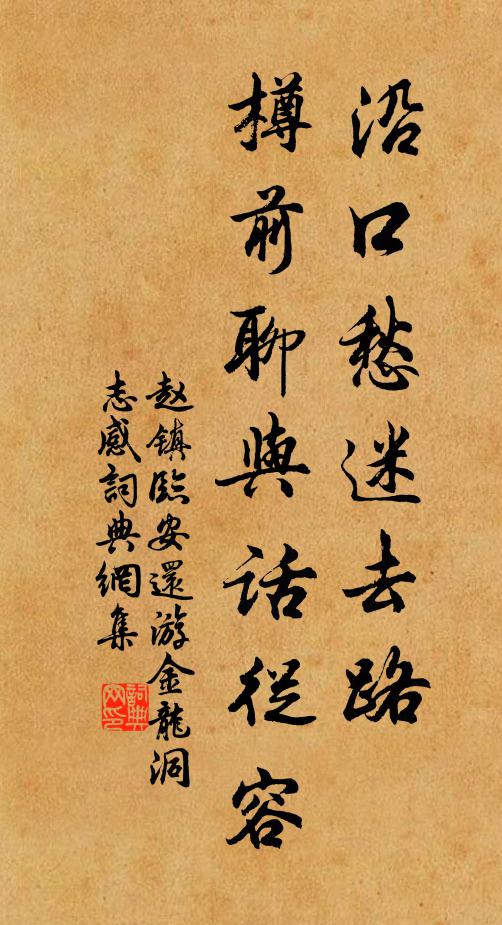 沿口愁迷去路
樽前聊與话從容
赵鎮臨安還游金龍洞
志感詞典網集
詞典网印